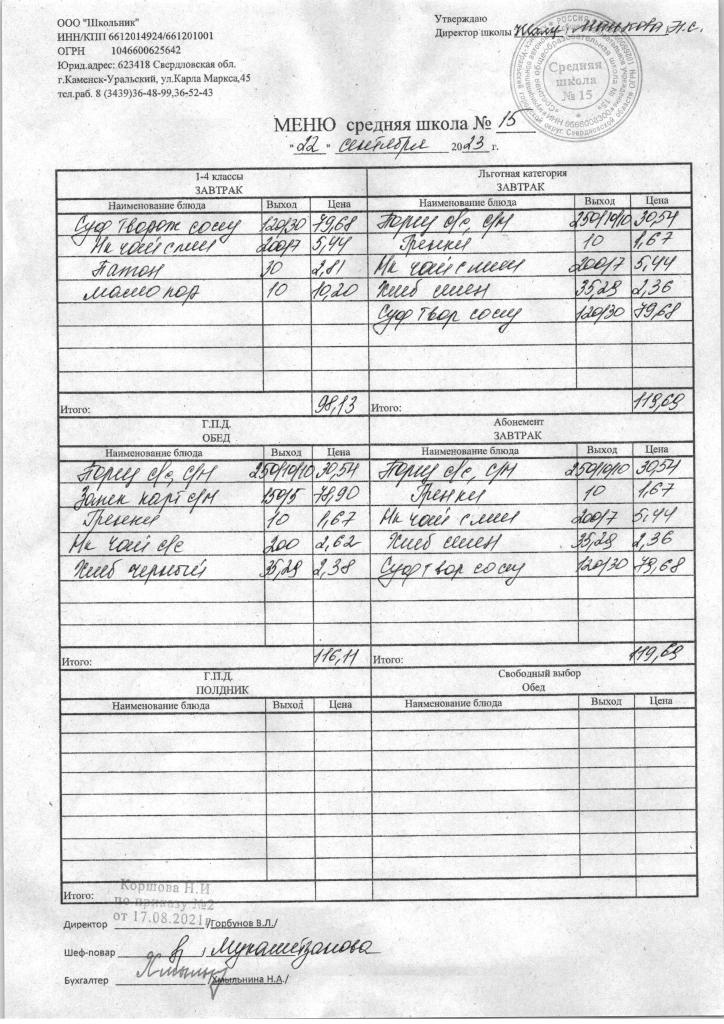 ООО "Школьник"
ИНН/КПП 6612014924/661201001
ОГРН 1046600625642
Юрид.адрес: 623418 Свердловская обл.
г.Каменск-Уральский, ул.Карла Маркса,45
тел.раб. 8 (3439)36-48-99,36-52-43
Утверждаю
Директор школы
Средняя школа № 15
МЕНЮ средняя школа № 15
"22" сентября 2023 г.
1-4 классы
ЗАВТРАК
Наименование блюда Выход Цена
Суф творож сгущ 120/30 79,68
Нк чай с лим 200/7 5,44
Батон 30 2,81
масло пор 10 10,20
Итого: 98,13
Льготная категория
ЗАВТРАК
Наименование блюда Выход Цена
Борщ с/с, с/м 250/10/10 30,54
Гренки 10 1,67
Нк чай с лим 200/7 5,44
Хлеб 35,28 2,36
Суф твор сгущ 120/30 79,68
Итого: 119,69
Г.П.Д.
ОБЕД
Наименование блюда Выход Цена
Борщ с/с, с/м 250/10/10 30,54
Запек карт с/м 150/5 78,90
Гренки 10 1,67
Нк чай с/с 200 2,62
Хлеб черный 35,28 2,38
Итого: 116,11
Абонемент
ЗАВТРАК
Наименование блюда Выход Цена
Борщ с/с, с/м 250/10/10 30,54
Гренки 10 1,67
Нк чай с лим 200/7 5,44
Хлеб 35,28 2,36
Суф твор сгущ 120/30 79,68
Итого: 119,69
Г.П.Д.
ПОЛДНИК
Наименование блюда Выход Цена
Итого:
Свободный выбор
Обед
Наименование блюда Выход Цена
Коршова Н.И
по приказу №2
от 17.08.2021г
Директор /Горбунов В.Л./
Шеф-повар
Бухгалтер /Хмыльнина Н.А./